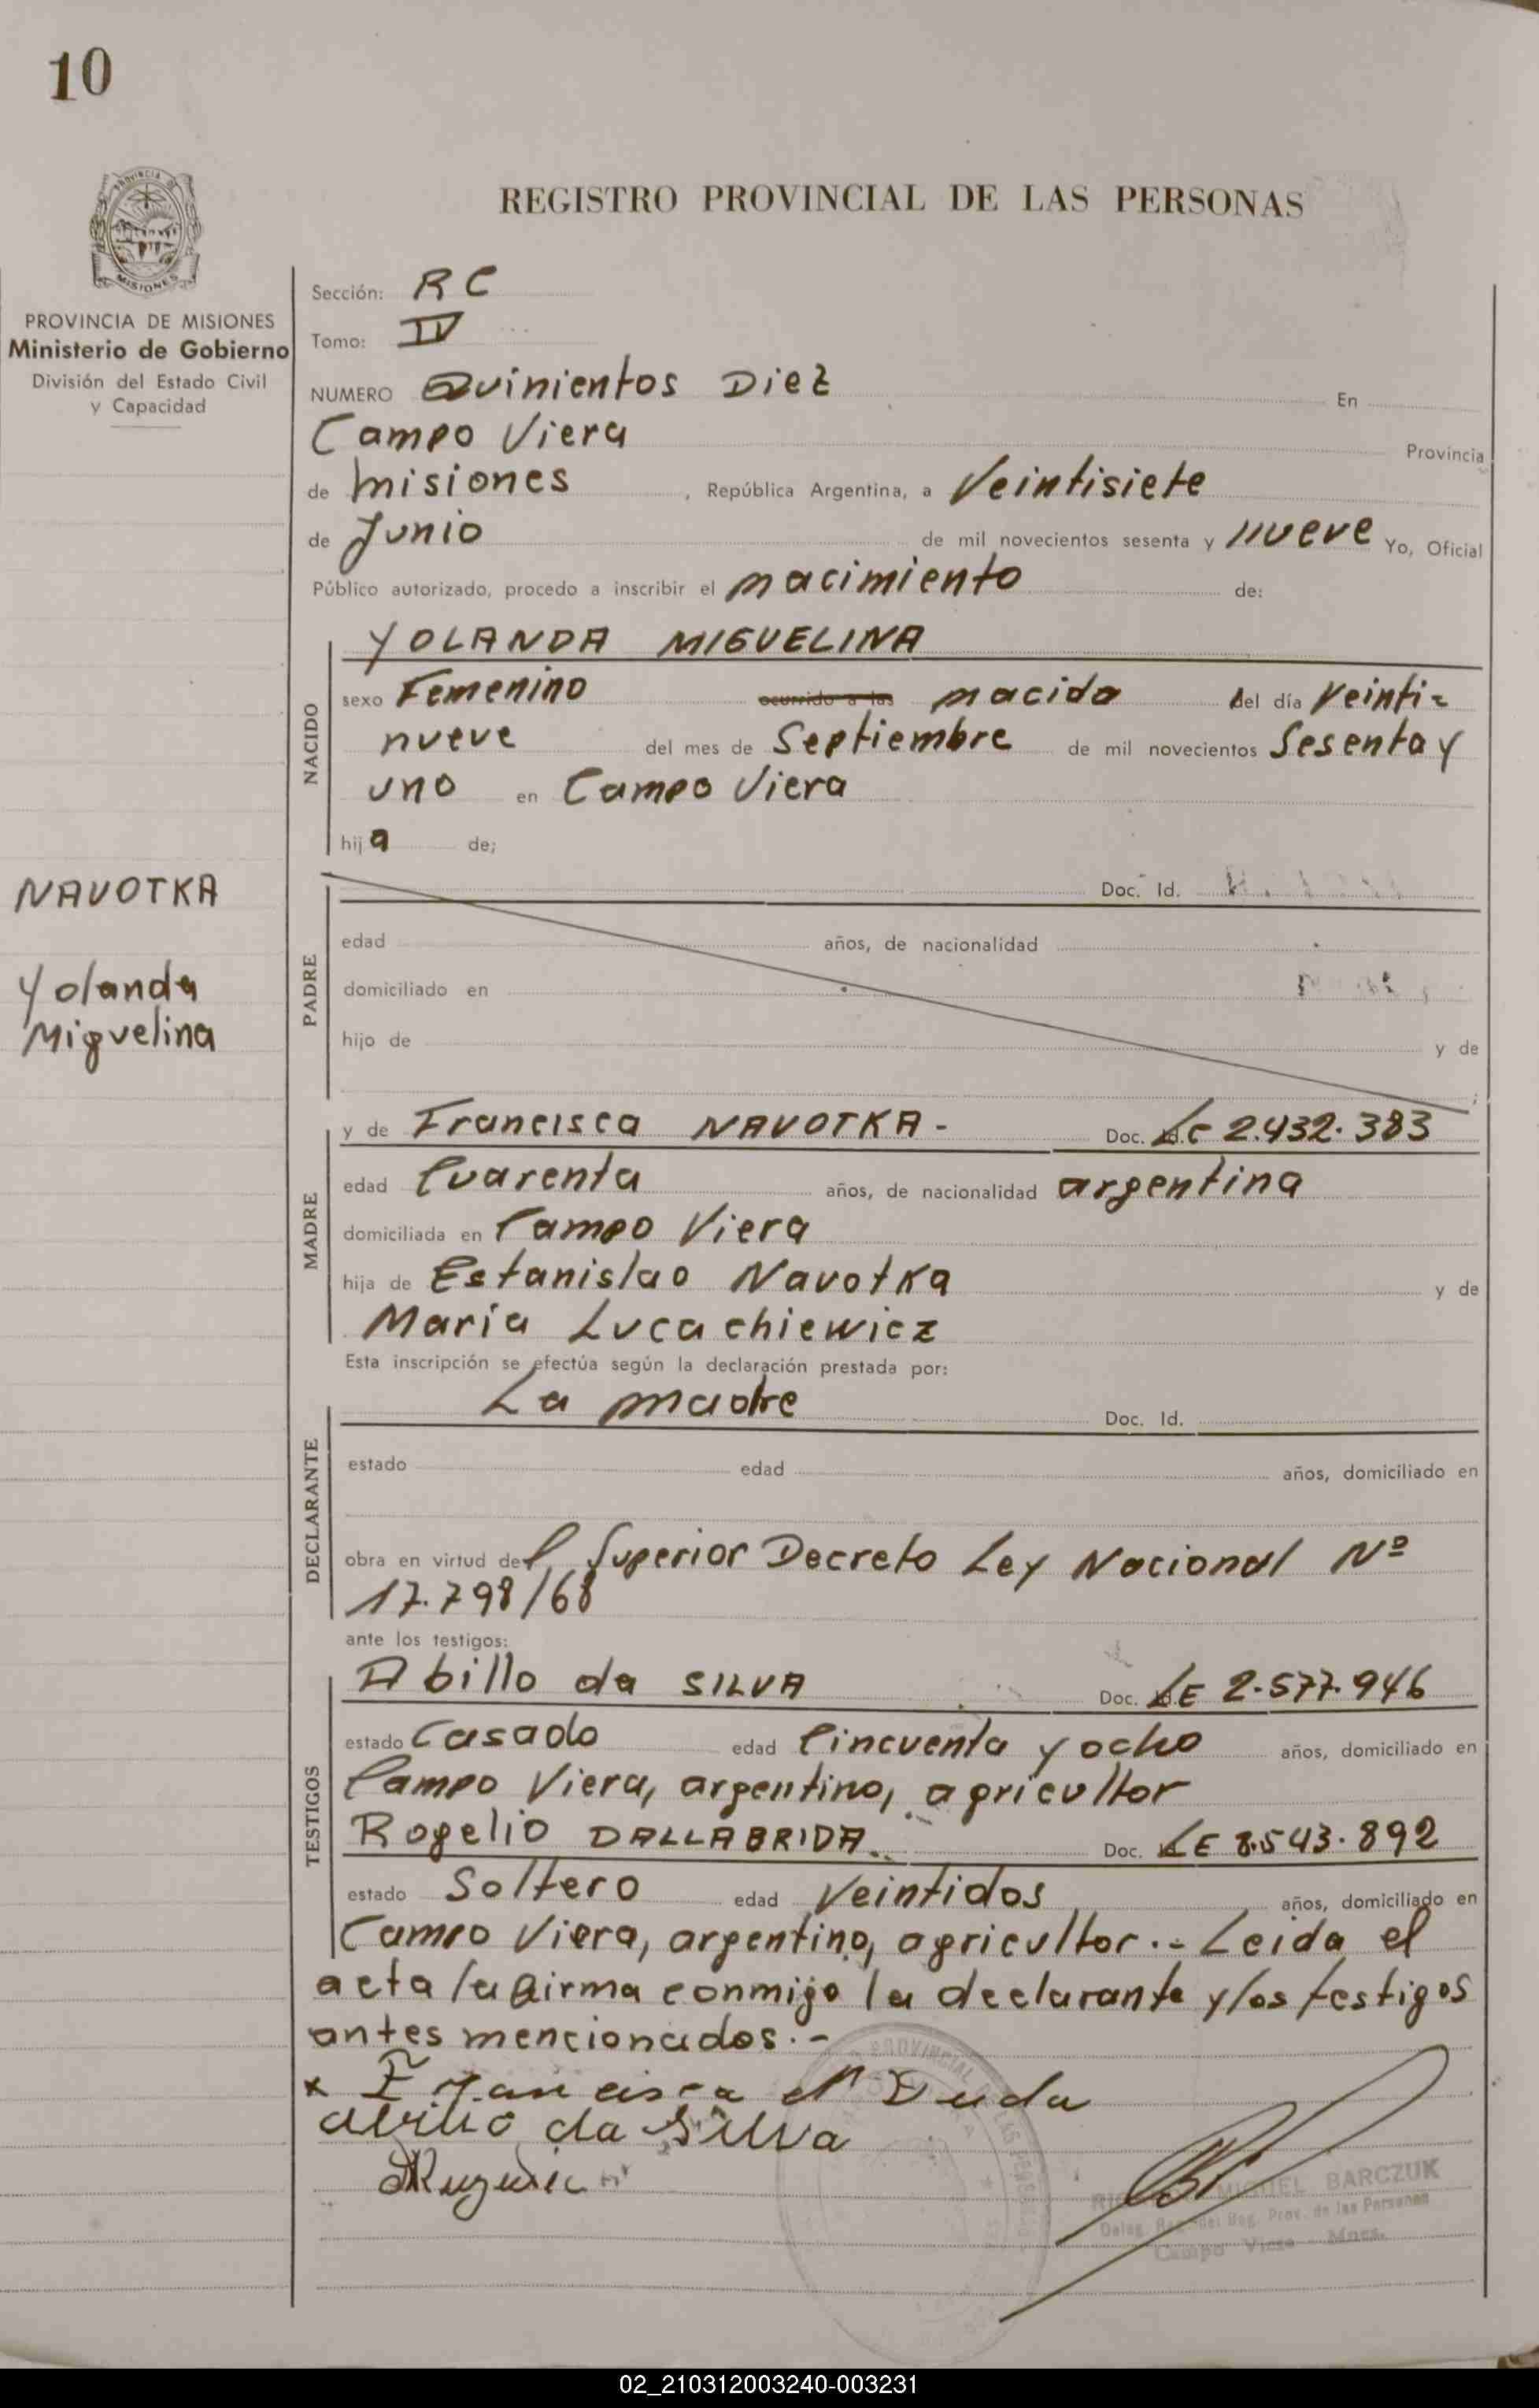 10
PROVINCIA DE
MISIONES
REGISTRO PROVINCIAL DE LAS PERSONAS
PROVINCIA DE MISIONES
Ministerio de Gobierno
División del Estado Civil
y Capacidad
Sección: RC
Tomo: IV
NUMERO Quinientos Diez En
Campo Viera Provincia
de Misiones , República Argentina, a Veintisiete
de Junio de mil novecientos sesenta y nueve Yo, Oficial
Público autorizado, procedo a inscribir el nacimiento de:
NACIDO
YOLANDA MIGUELINA
sexo Femenino ocurrido a las nacida del día Veinti=
nueve del mes de Septiembre de mil novecientos Sesenta y
uno en Campo Viera
hija de;
NAVOTKA
Yolanda
Miguelina
PADRE
Doc. Id.
edad años, de nacionalidad
domiciliado en
hijo de y de
;
MADRE
y de Francisca NAVOTKA - Doc. LC 2.432.383
edad Cuarenta años, de nacionalidad argentina
domiciliada en Campo Viera
hija de Estanislao Navotka y de
María Lucachiewicz
Esta inscripción se efectúa según la declaración prestada por:
DECLARANTE
La madre Doc. Id.
estado edad años, domiciliado en
obra en virtud del Superior Decreto Ley Nacional Nº
17.798/68
ante los testigos:
TESTIGOS
Abillo da SILVA Doc. LE 2.577.946
estado Casado edad Cincuenta y ocho años, domiciliado en
Campo Viera, argentino, agricultor
Rogelio DALLABRIDA. Doc. LE 8.543.892
estado Soltero edad Veintidos años, domiciliado en
Campo Viera, argentino, agricultor.- Leida el
acta la firma conmigo la declarante y los testigos
antes mencionados.-
x Francisca N Duda
da Silva
MIGUEL BARCZUK
Deleg. Reg. del Reg. Prov. de las Personas
Campo Viera Mnes.
02_210312003240-003231